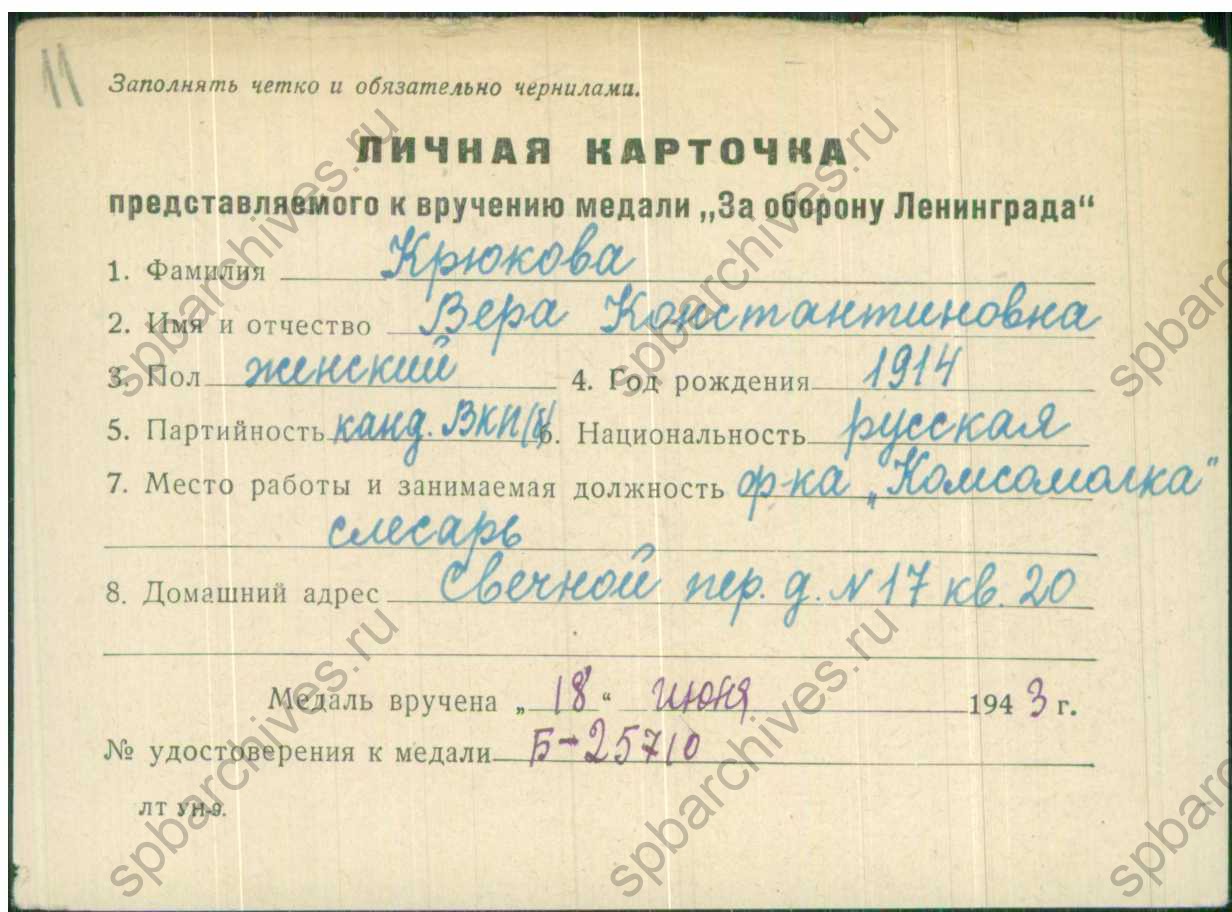 11
Заполнять четко и обязательно чернилами.
ЛИЧНАЯ КАРТОЧКА
представляемого к вручению медали „За оборону Ленинграда“
1. Фамилия Крюкова
2. Имя и отчество Вера Константиновна
3. Пол женский 4. Год рождения 1914
5. Партийность канд. ВКП(б) 6. Национальность русская
7. Место работы и занимаемая должность ф-ка „Комсомолка“
слесарь
8. Домашний адрес Свечной пер. д. N 17 кв. 20
Медаль вручена „18“ июня 1943 г.
№ удостоверения к медали Б-25710
ЛТ УН-9.
spbarchives.ru
spbarchives.ru
spbarchives.ru
spbarchives.ru
spbarchives.ru
spbarchives.ru